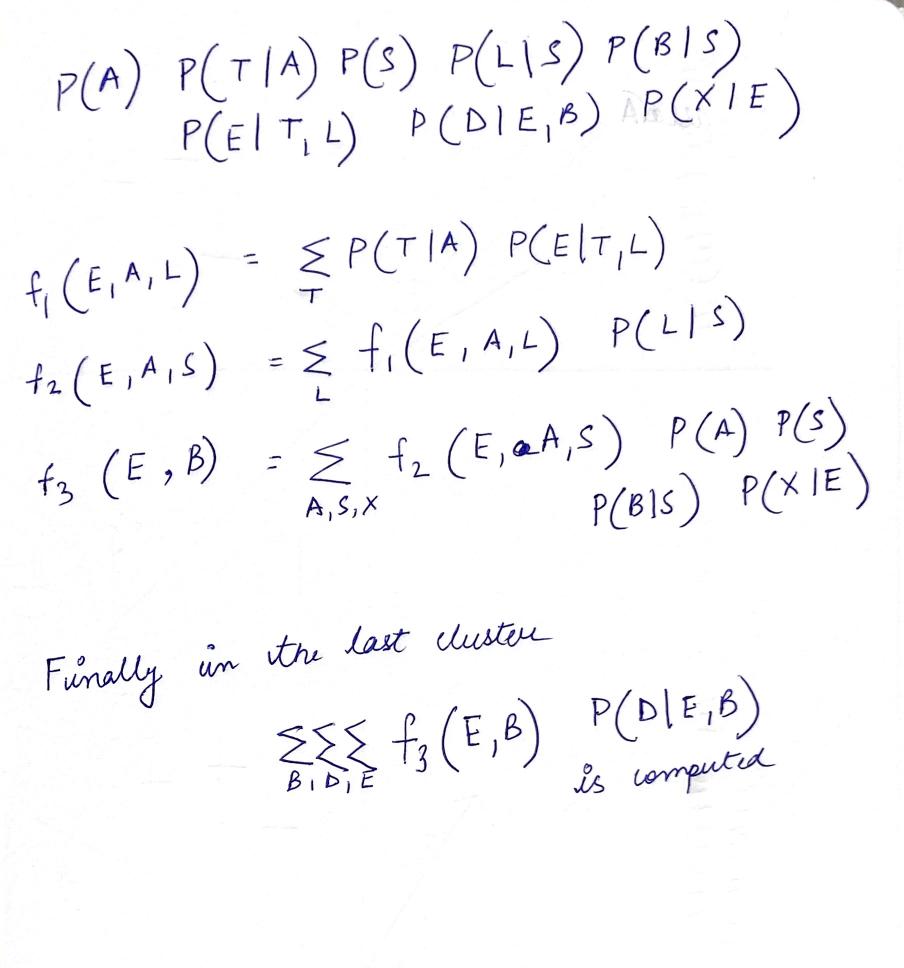 P(A) P(T|A) P(S) P(L|S) P(B|S)
P(E|T,L) P(D|E,B) P(X|E)
f₁(E,A,L) = Σ_T P(T|A) P(E|T,L)
f₂(E,A,S) = Σ_L f₁(E,A,L) P(L|S)
f₃(E,B) = Σ_{A,S,X} f₂(E,A,S) P(A) P(S)
P(B|S) P(X|E)
Finally in the last cluster
ΣΣΣ_{B,D,E} f₃(E,B) P(D|E,B)
is computed